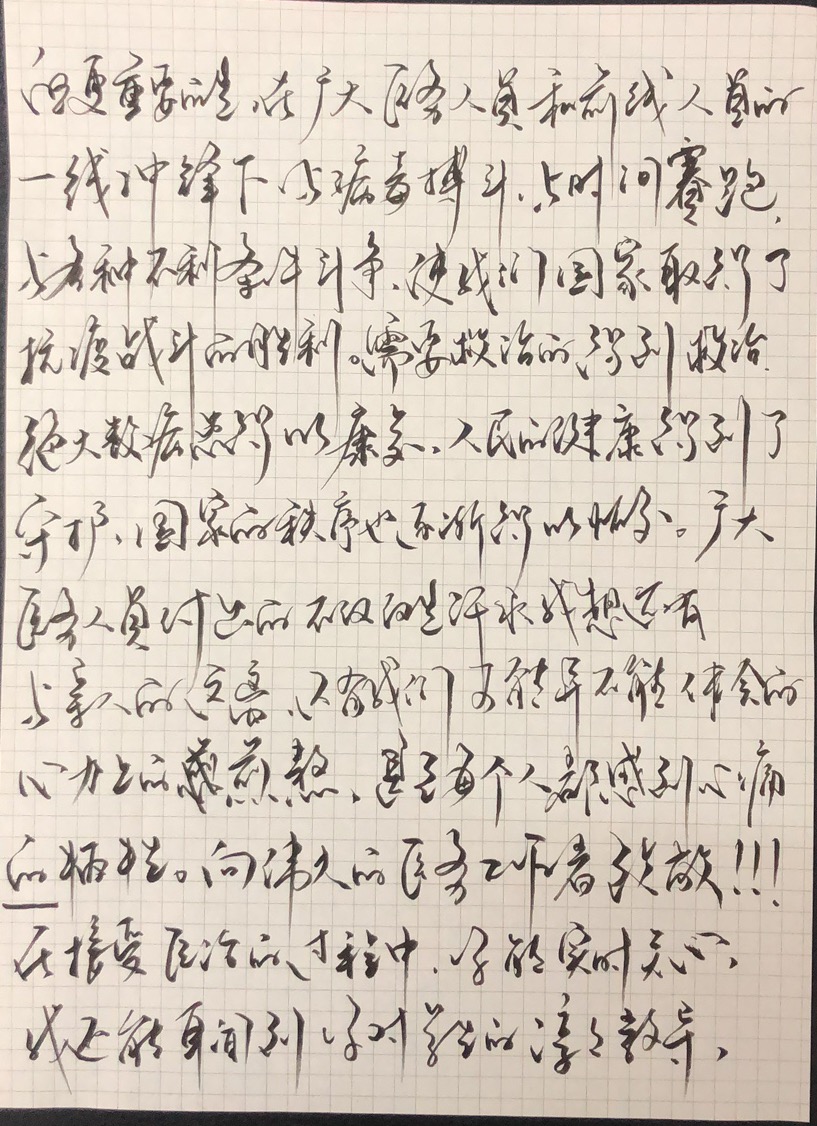 但更重要的是,在广大医务人员和前线人员的
一线冲锋下,与病毒搏斗,与时间赛跑,
与各种不利条件斗争,使我们国家取得了
抗疫战斗的胜利。需要救治的得到救治
绝大数病患得以康复,人民的健康得到了
守护,国家的秩序也逐渐得以恢复。广大
医务人员付出的不仅仅是汗水我想还有
与亲人的,只有我们可能并不能体会的
心力上的煎熬,甚至每个人都感到心痛
的牺牲。向伟大的医务工作者致敬!!!
在接受医治的过程中,学部实时关心,
我还能耳闻到学对学生的淳淳教导,